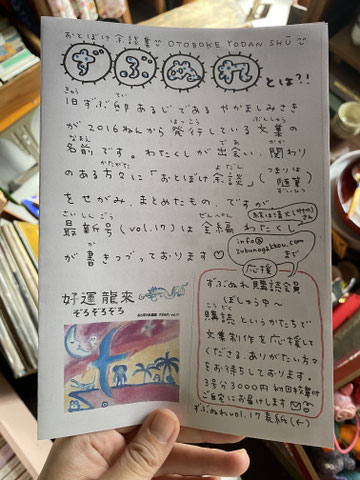 おとぼけ余談集 OTOBOKE YODAN SHŪ
ずぶぬれ とは?!
旧ずぶ邸あるじである やがみしみさき
が2016ねんから発行している文集の
名前です。わたくしが出会い、関わり
のある方々に「おとぼけ余談」(つまりは随筆)
をせがみ、まとめたもの、ですが
最新号(vol.17)は全編わたくし
が書きつづっております
info@
zubunogakkou.com
まで
好運龍来
ぞろぞろぞろ
応援
ずぶぬれ購読会員
ぼしゅう中〜
購読というかたちで
文集制作を応援して
くださるありがたい方々
をお待ちしております。
3号分3000円
ご自宅にお届けします
ずぶぬれvol.17表紙